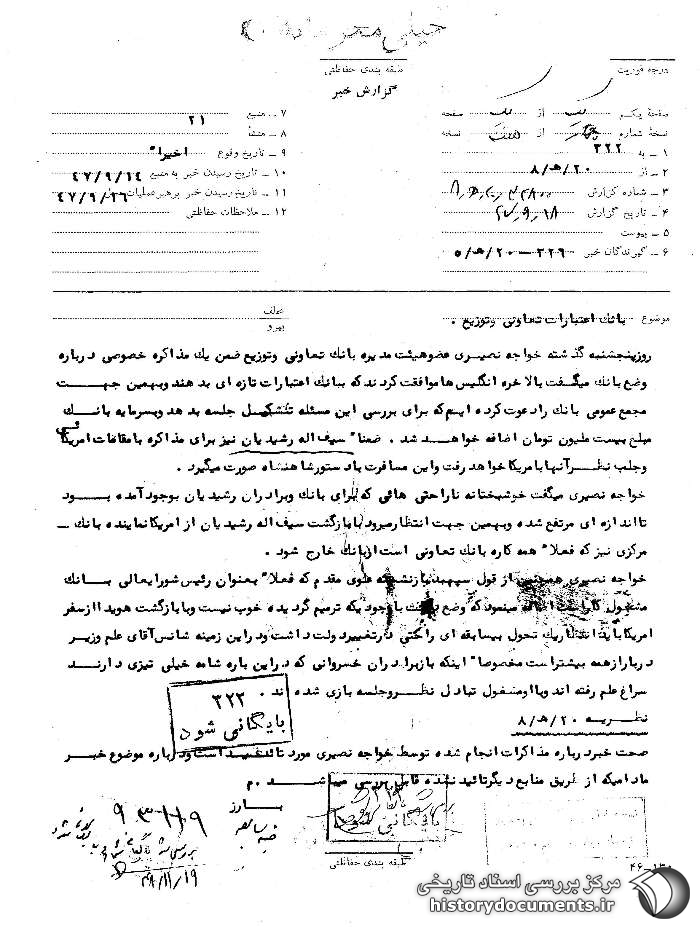 خیلی محرمانه
درجه فوریت
طبقه بندی حفاظتی
گزارش خبر
صفحهٔ یکم یک از یک صفحه
نسخهٔ شماره از نسخه
۱ ــ به ۳۲۲
۲ ــ از ۲۰/ه/۸
۳ ــ شماره گزارش
۴ ــ تاریخ گزارش
۵ ــ پیوست
۶ ــ گیرندگان خبر ۳۲۶ــ۲۰/ه/۵
۷ ــ منبع ۲۱
۸ ــ منشأ
۹ ــ تاریخ وقوع اخیرا"
۱۰ ــ تاریخ رسیدن خبر به منبع ۴۷/۹/۱۴
۱۱ ــ تاریخ رسیدن خبر برهبر عملیات ۴۷/۹/۱۶
۱۲ ــ ملاحظات حفاظتی
موضوع بانک اعتبارات تعاونی وتوزیع .
عطف
پیرو
روزپنجشنبه گذشته خواجه نصیری عضوهیئت مدیره بانک تعاونی وتوزیع ضمن یک مذاکره خصوصی درباره
وضع بانک میگفت بالاخره انگلیس هاموافقت کردند که ببانک اعتبارات تازه ای بدهند وبهمین جهت
مجمع عمومی بانک رادعوت کرده ایم که برای بررسی این مسئله تشکیل جلسه بدهد وبسرمایه بانک
مبلغ بیست ملیون تومان اضافه خواهد شد . ضمنا" سیف اله رشیدیان نیز برای مذاکره بامقامات امریکائی
وجلب نظر آنها بامریکا خواهد رفت واین مسافرت بادستورشاهنشاه صورت میگیرد .
خواجه نصیری میگفت خوشبختانه ناراحتی هائی که برای بانک وبرادران رشیدیان بوجودآمده بود
تااندازه ای مرتفع شده وبهمین جهت انتظارمیرود بابازگشت سیف اله رشیدیان از امریکانماینده بانک ــ
مرکزی نیز که فعلا" همه کاره بانک تعاونی است ازبانک خارج شود .
خواجه نصیری همچنین از قول سپهبد بازنشسته علوی مقدم که فعلا" بعنوان رئیس شورایعالی بانک
مشغول کاراست میشود که وضع باوجودیکه ترمیم گردیده خوب نیست وبابازگشت هویدا ازسفر
امریکا باید انتظاریک تحول بیسابقه ای را حتی درتغییردولت داشت ودراین زمینه شانس آقای علم وزیر
دربارازهمه بیشتراست مخصوصا" اینکه بازبرادران خسروانی که دراین باره شامه خیلی تیزی دارند
سراغ علم رفته اند وبااومشغول تبادل نظروجلسه بازی شده اند .
۳۲۲
بایگانی شود
نظریــه ۲۰/ه/۸
صحت خبردرباره مذاکرات انجام شده توسط خواجه نصیری مورد تائید است ودرباره موضوع خبر
مادامیکه از طریق منابع دیگرتائید نشده قابل بررسی میباشد . م
بایگانی
بارز
۹۳۱۱۹
۴۸/۱۱/۱۹
طبقه بندی حفاظتی
مرکز بررسی اسناد تاریخی
historydocuments.ir